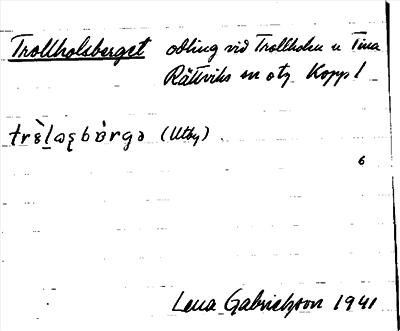 Trollholsberget odling vid Trollholen u Tina
Rättviks sn otz Koppl
trὲl̲ɷʂbὰrgə (Utby)
6
Lena Gabrielsson 1941